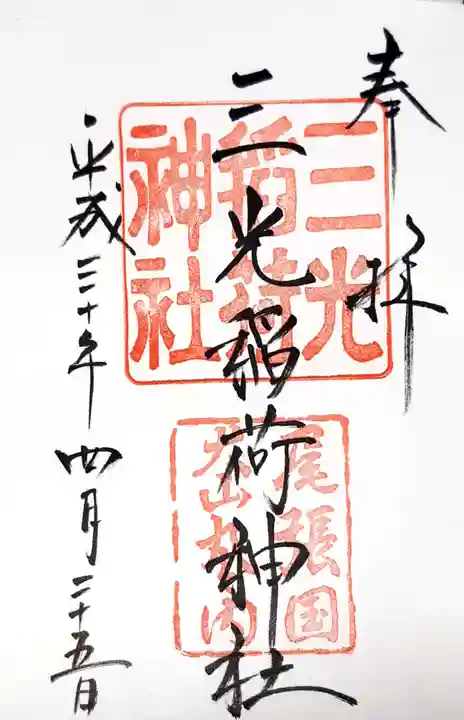 奉拝
三光稲荷神社
平成三十年四月二十五日
三光
稲荷
神社
尾張国
犬山城内